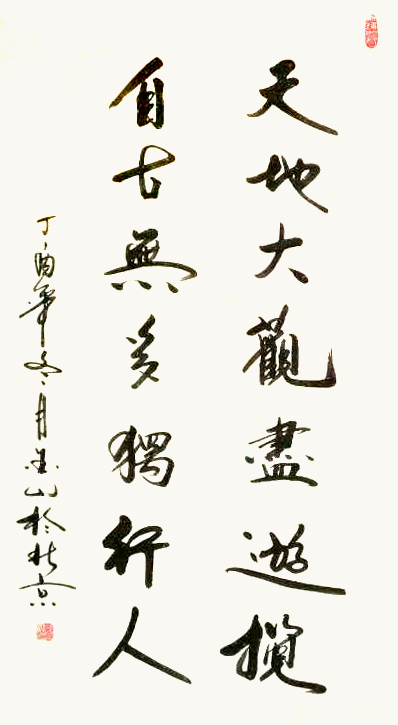 天地大觀盡遊攬
自古無多獨行人
丁酉年冬月墨山於北京